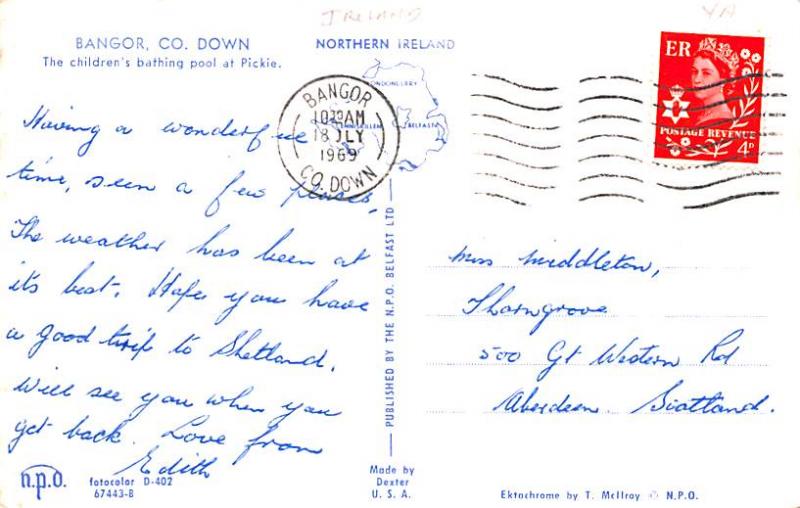 IRELAND
YA
BANGOR, CO. DOWN
The children's bathing pool at Pickie.
NORTHERN IRELAND
LONDONDERRY
ENNISKILLEN
BELFAST
BANGOR
10 AM
18 JLY
1969
CO. DOWN
ER
POSTAGE REVENUE
4D
Having a wonderful
time, seen a few places.
The weather has been at
its best. Hope you have
a good trip to Shetland.
Will see you when you
get back. Love from
Edith
PUBLISHED BY THE N.P.O. BELFAST LTD
Miss Middleton,
Thorngrove
500 Gt Western Rd
Aberdeen. Scotland.
n.p.o.
fotocolor D-402
67443-B
Made by
Dexter
U. S. A.
Ektachrome by T. McIlroy © N.P.O.